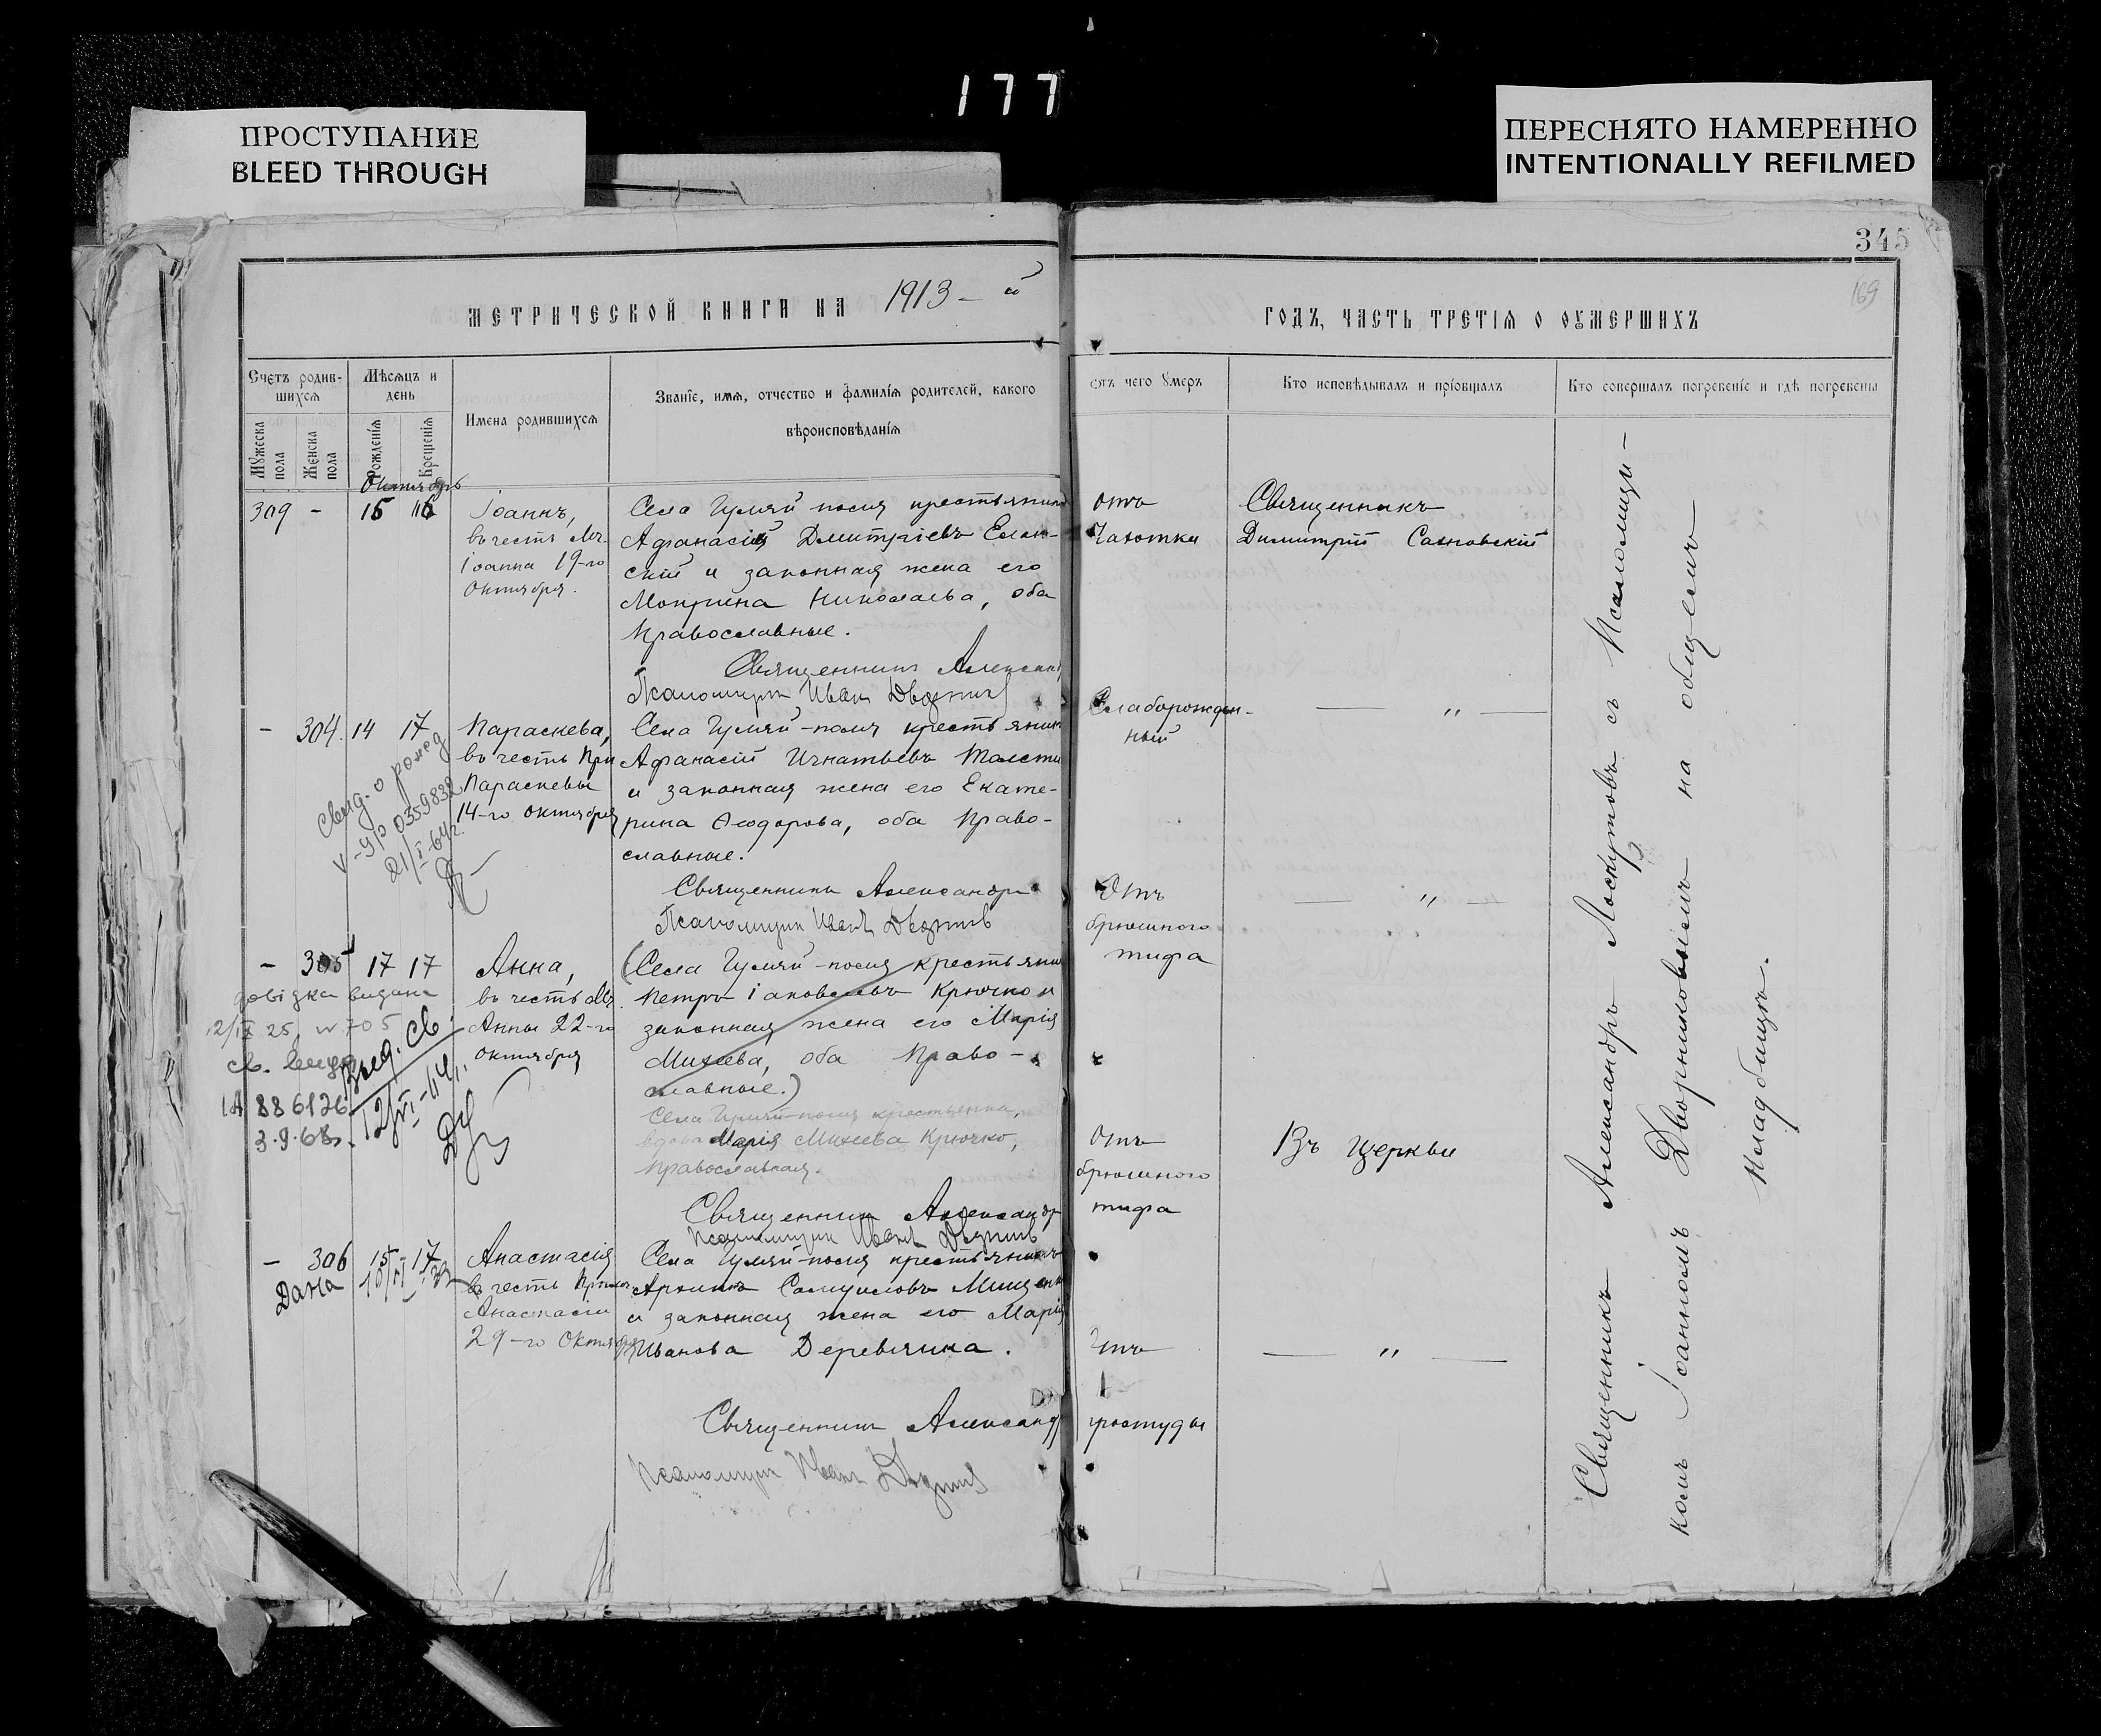 177
ПРОСТУПАНИЕ
BLEED THROUGH
ПЕРЕСНЯТО НАМЕРЕННО
INTENTIONALLY REFILMED
МЕТРИЧЕСКОЙ КНИГИ НА 1913-й
Счетъ родив-
шихся
Мужеска пола
Женска пола
Мѣсяцъ и
день
Рожденія
Крещенія
Имена родившихся
Званіе, имя, отчество и фамилія родителей, какого
вѣроисповѣданія
Октябрь
309 - 15 16
Іоаннъ,
въ честь
Іоанна 19-го
Октября.
Села Гуляй-поля крестьянинъ
Афанасій Дмитріевъ
скій и законная жена его
Мокрина Николаева, оба
Православные.
Священникъ
Псаломщикъ Иванъ
- 304. 14 17
Параскева,
въ честь
Параскевы
14-го Октября
Села Гуляй-поля крестьянин
Афанасій Игнатьевъ
и законная жена его Екате-
рина Ѳеодорова, оба Право-
славные.
Священникъ Александръ
Псаломщикъ Иванъ
Свид. о рожд
V-ЯР 0359832
21/I-64г.
- 305 17 17
Анна,
въ честь
Анны 22-го
октября
(Села Гуляй-поля крестьянин
Петръ Іаковлевъ Крючко и
законная жена его Марія
Михеева, оба Право-
славные.)
Села Гуляй-поля крестьянка,
вдова Марія Михеева Крючко,
Православная.
Священникъ Александръ
Псаломщикъ Иванъ
довідка видана
12/IX 25, № 705
886126
3.9.68г.
- 306 15 17
Дана
Анастасія
въ честь
Анастасіи
29-го Октября
Села Гуляй-поля крестьянинъ
Самуиловъ
и законная жена его Марія
Иванова Деревянка.
Священникъ Александръ
Псаломщикъ Иванъ
345
169
ГОДЪ, ЧАСТЬ ТРЕТІЯ О ОУМЕРШИХЪ
отъ чего Умеръ
Кто исповѣдывалъ и пріобщалъ
Кто совершалъ погребеніе и гдѣ погребены
отъ
Чахотки
Священникъ
Димитрій Сахновскій
Слаборожден-
ный
— " —
Отъ
брюшного
тифа
— " —
Отъ
брюшного
тифа
Въ церкви
Отъ
простуды
— " —
Священникъ Александръ Лоскутовъ съ Псаломщи-
комъ Іоанномъ Дворниковымъ на общемъ
кладбищѣ.